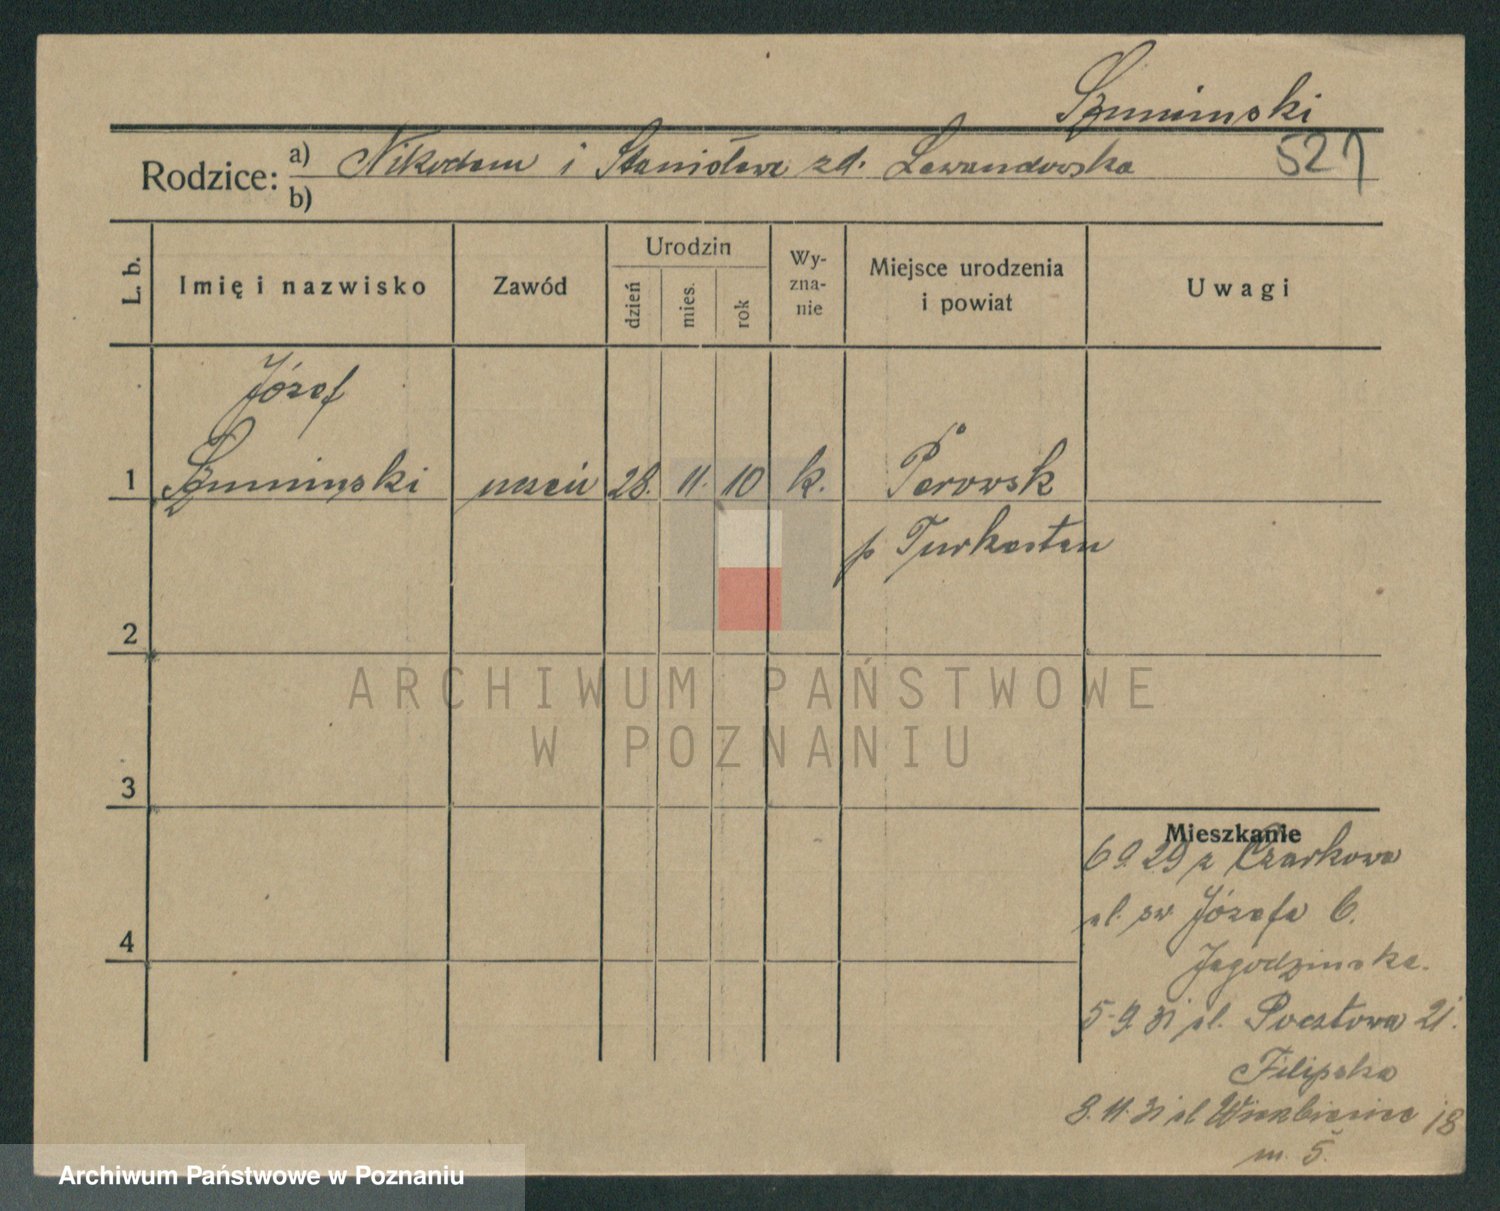 Szumiński
521
Rodzice: a) Nikodem i Stanisława zd. Lewandowska
b)
L. b.
Imię i nazwisko
Zawód
Urodzin
dzień
mies.
rok
Wy-
zna-
nie
Miejsce urodzenia
i powiat
Uwagi
Józef
1 Szumiński uczeń 28. 11. 10 k. Perowsk
p Turkestan
2
3
4
Mieszkanie
6 9 29 z Czarkowa
ul. sw Józefa 6.
Jagodzinska.
5-9 31 ul. Pocztowa 21.
Filipska
3. 11. 31 ul Wierzbiecice 18
m. 5.
ARCHIWUM PAŃSTWOWE
W POZNANIU
Archiwum Państwowe w Poznaniu